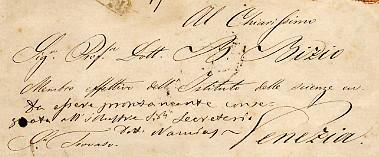 Al Chiarissimo
Sigr. Profre. Dott. B. Bizio
Membro effettivo dell' Istituto delle scienze
da essere prontamente conse-
gnata all' illustre Sigr. Secretario
Dott.
S. Trovaso. Venezia.